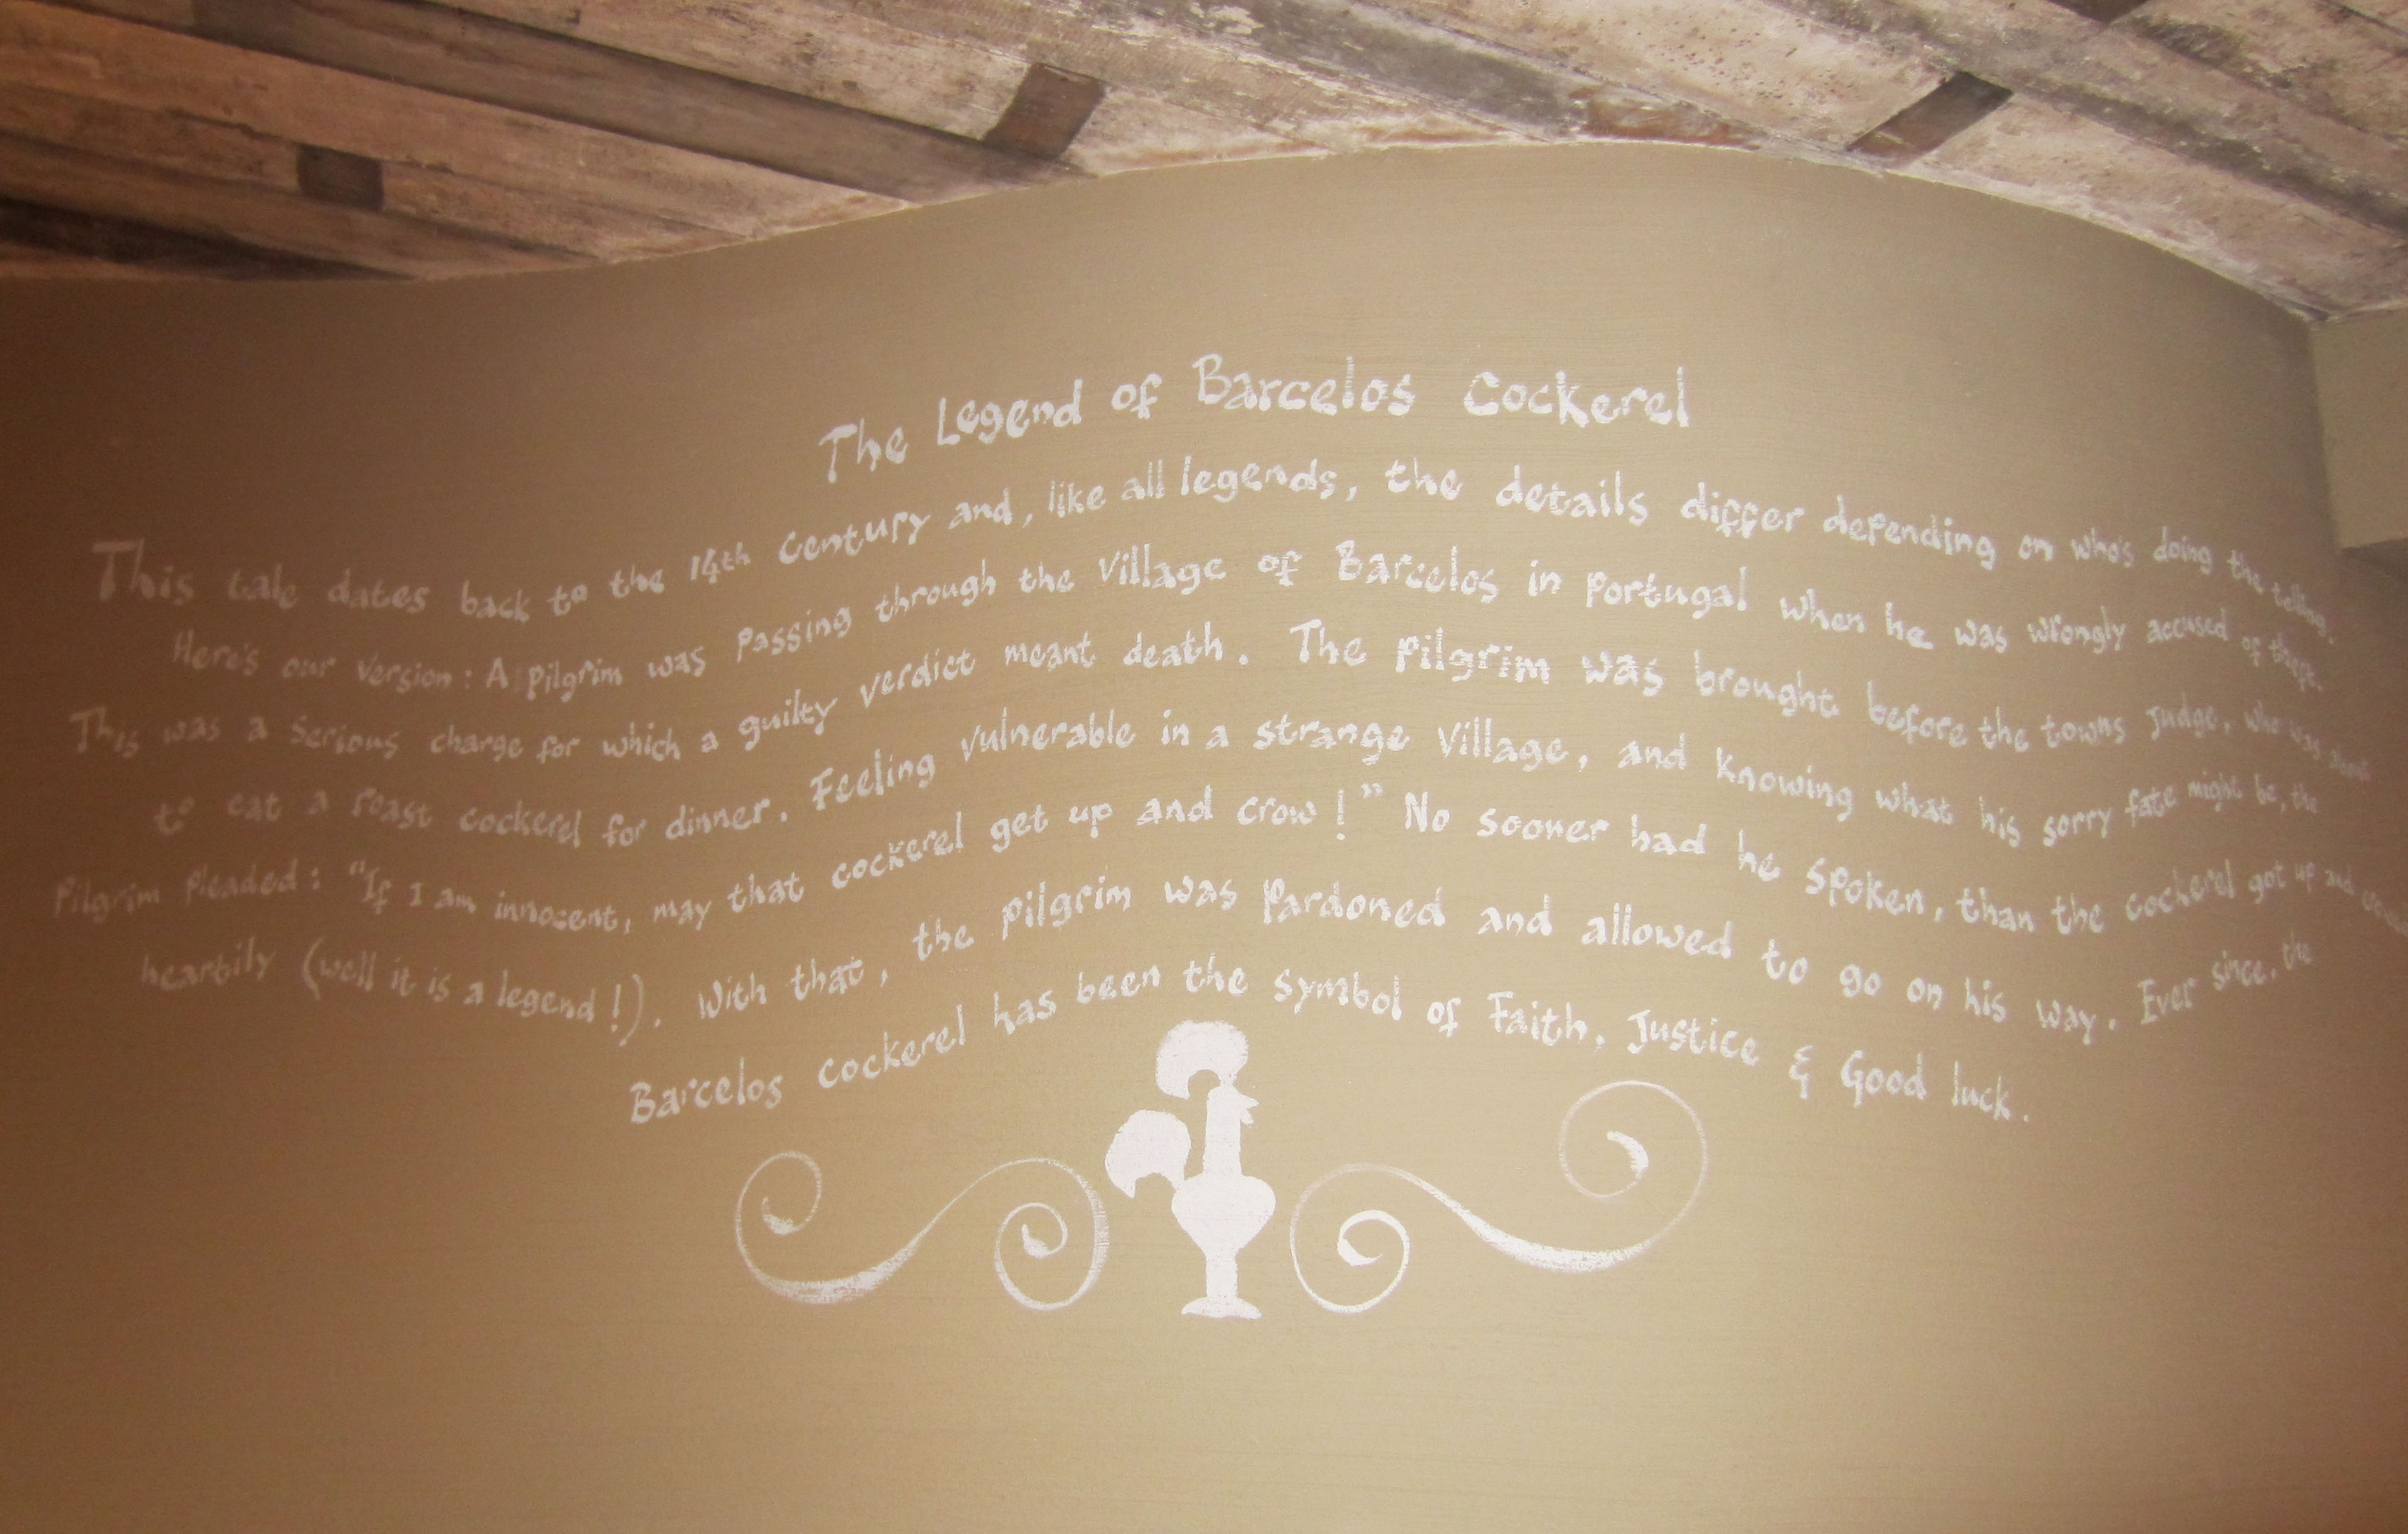 The Legend of Barcelos Cockerel
This tale dates back to the 14th Century and, like all legends, the details differ depending on who's doing the telling.
Here's our version: A pilgrim was passing through the Village of Barcelos in Portugal when he was wrongly accused of theft.
This was a serious charge for which a guilty verdict meant death. The pilgrim was brought before the towns Judge, who was about
to eat a roast cockerel for dinner. Feeling vulnerable in a strange Village, and knowing what his sorry fate might be, the
Pilgrim pleaded: "If I am innocent, may that cockerel get up and crow!" No sooner had he spoken, than the cockerel got up and
heartily (well it is a legend!). With that, the pilgrim was pardoned and allowed to go on his way. Ever since, the
Barcelos cockerel has been the symbol of Faith, Justice & Good luck.